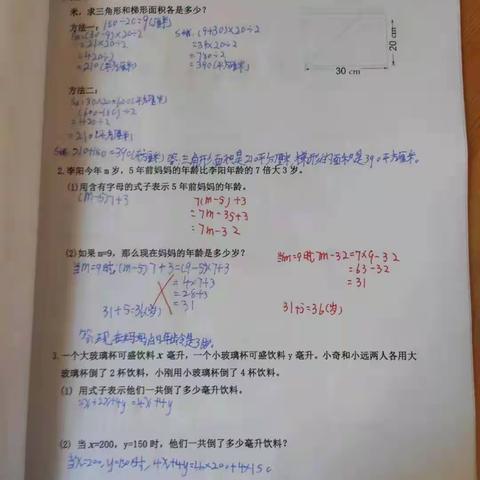 米，求三角形和梯形面积各是多少？
方法一：180÷20=9(厘米)
S=(30-9)×20÷2
=21×20÷2
=420÷2
=210(平方厘米)
S梯=(9+30)×20÷2
=39×20÷2
=780÷2
=390(平方厘米)
20
30 cm
方法二：
30×20=600(平方厘米)
(600-180)÷2
=420÷2
=210(平方厘米)
210+180=390(平方厘米) 答：三角形面积是210平方厘米，梯形的面积是390平方厘米。
2.李阳今年 m 岁，5 年前妈妈的年龄比李阳年龄的 7 倍大 3 岁。
(1)用含有字母的式子表示 5 年前妈妈的年龄。
(m-5)7+3
7(m-5)+3
=7m-35+3
=7m-32
(2)如果 m=9，那么现在妈妈的年龄是多少岁？
当m=9时，(m-5)7+3=(9-5)×7+3
=4×7+3
=28+3
=31
31+5=36(岁)
当m=9时 7m-32=7×9-32
=63-32
=31
31+5=36(岁)
答：现在妈妈的年龄是36岁。
3.一个大玻璃杯可盛饮料 x 毫升，一个小玻璃杯可盛饮料 y 毫升。小奇和小远两人各用大
玻璃杯倒了 2 杯饮料，小刚用小玻璃杯倒了 4 杯饮料。
(1) 用式子表示他们一共倒了多少毫升饮料。
=4x+4y
(2) 当 x=200，y=150 时，他们一共倒了多少毫升饮料？
当x=200，y=150时，4x+4y=4×200+4×150